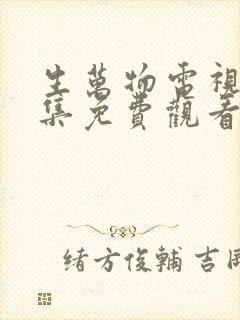 生萬物電視
集免費觀看
緒方俊輔 吉岡